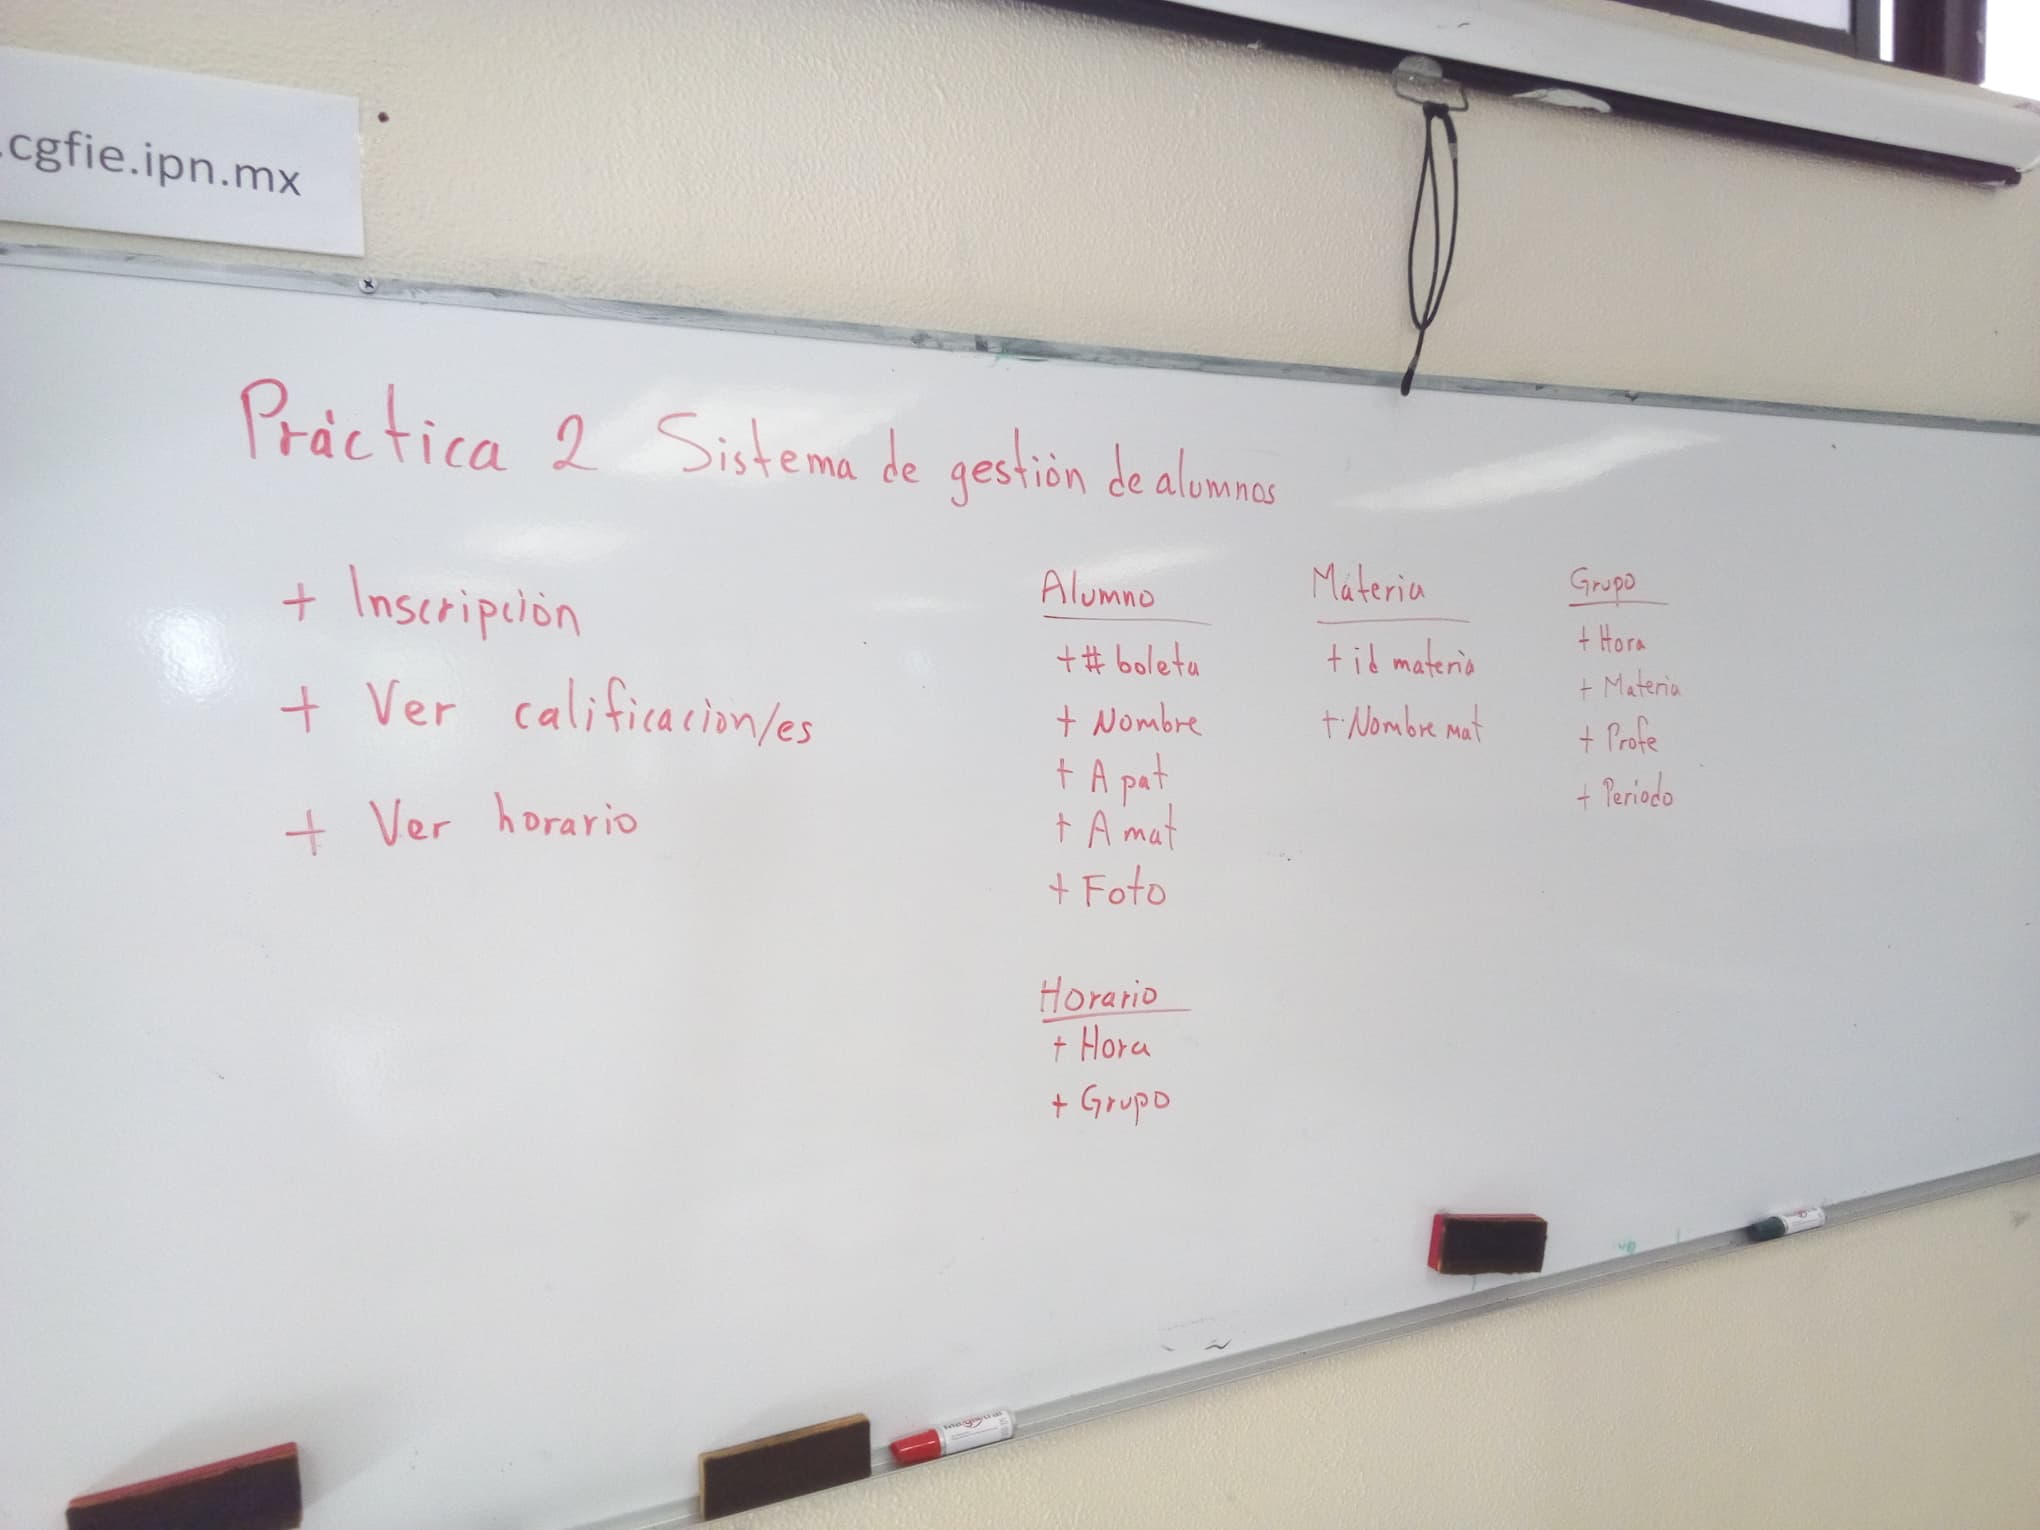 .cgfie.ipn.mx
Práctica 2 Sistema de gestión de alumnos
+ Inscripción
+ Ver calificacion/es
+ Ver horario
Alumno
+ # boleta
+ Nombre
+ A pat
+ A mat
+ Foto
Materia
+ id materia
+ Nombre mat
Grupo
+ Hora
+ Materia
+ Profe
+ Periodo
Horario
+ Hora
+ Grupo